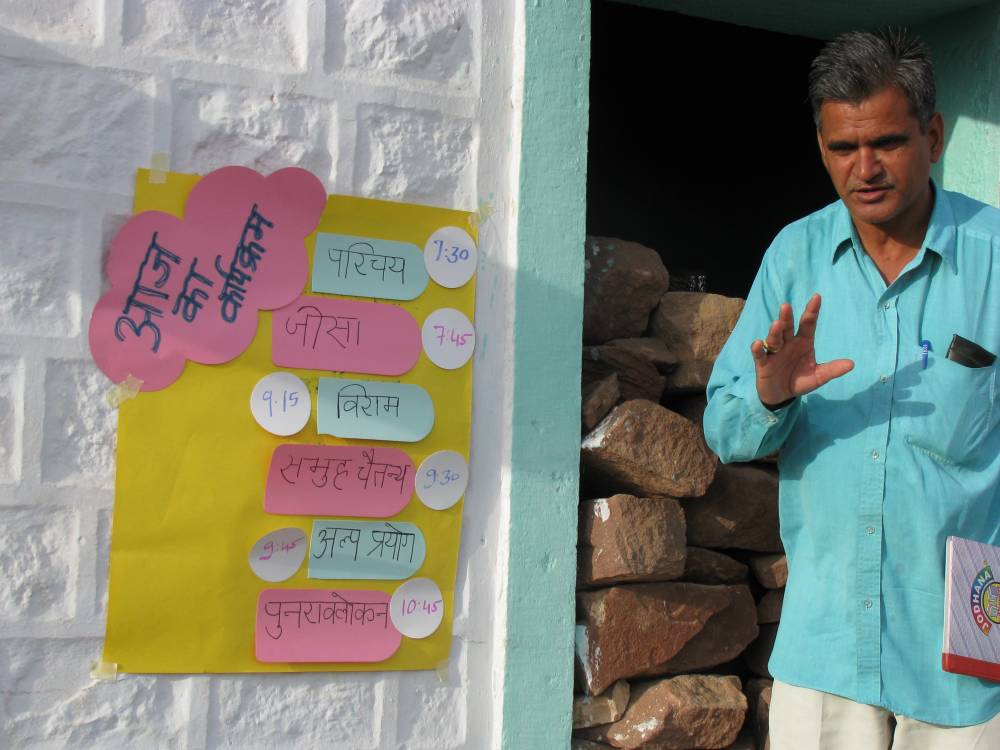 आज
का
कार्यक्रम
परिचय 7:30
जोसा 7:45
9.15 विराम
समुह चैतन्य 9:30
9:45 अल्प प्रयोग
पुनरावलोकन 10:45
JODHANA